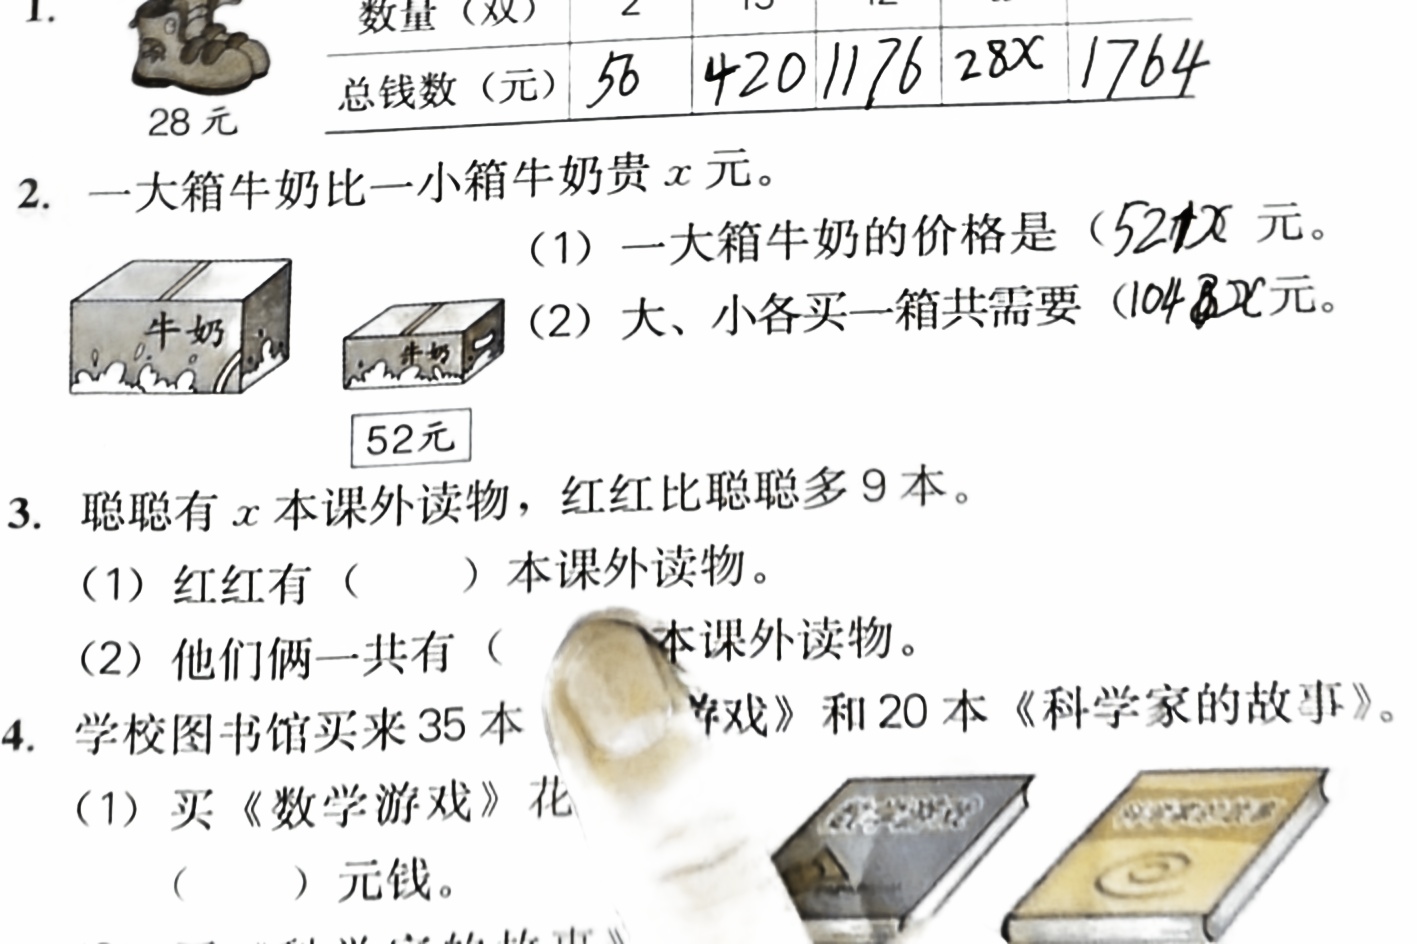 1.
数量（双） 2 15
总钱数（元） 56 420 1176 28x 1764
28元
2. 一大箱牛奶比一小箱牛奶贵 x 元。
（1）一大箱牛奶的价格是（52+x 元。
（2）大、小各买一箱共需要（104 x元。
牛奶
牛奶
52元
3. 聪聪有 x 本课外读物，红红比聪聪多 9 本。
（1）红红有（ ）本课外读物。
（2）他们俩一共有（ 本课外读物。
4. 学校图书馆买来 35 本 游戏》和 20 本《科学家的故事》。
（1）买《数学游戏》花
（ ）元钱。
《科学家的故事》